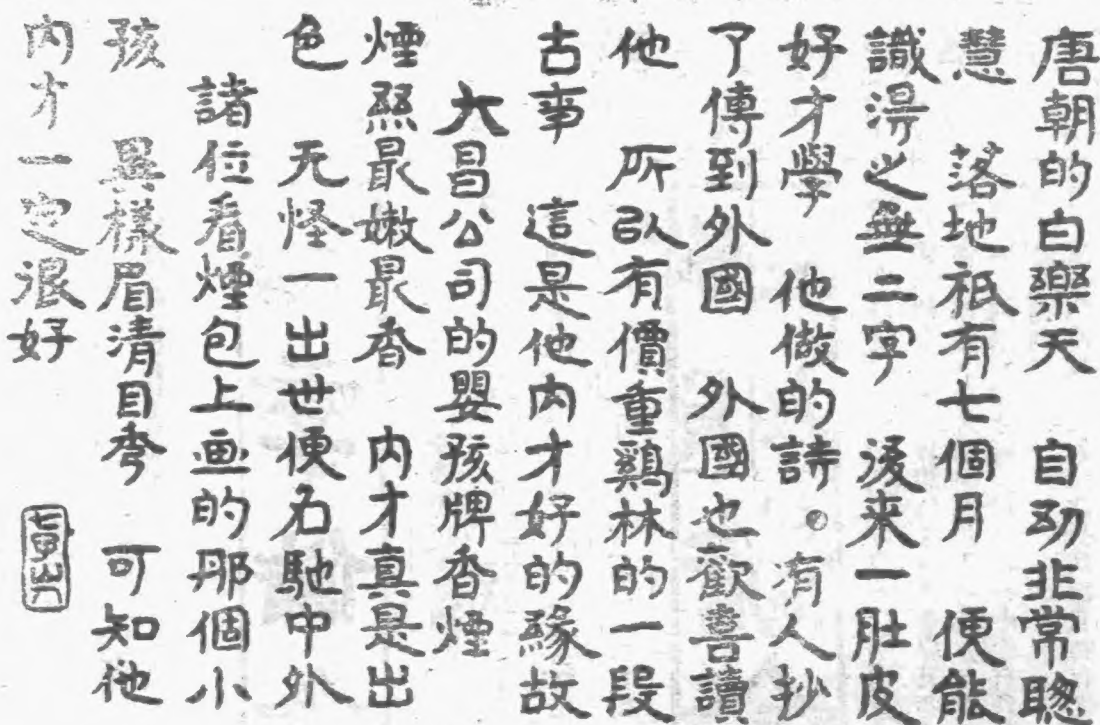 唐朝的白樂天　自幼非常聰
慧　落地祇有七個月　便能
識得之無二字　後来一肚皮
好才學　他做的詩。有人抄
了傳到外國　外國也歡喜讀
他　所以有價重鷄林的一段
古事　這是他内才好的緣故
大昌公司的嬰孩牌香煙
煙絲最嫩最香　内才真是出
色　无怪一出世便名馳中外
諸位看煙包上画的那個小
孩　異樣眉清目秀　可知他
内才一定很好